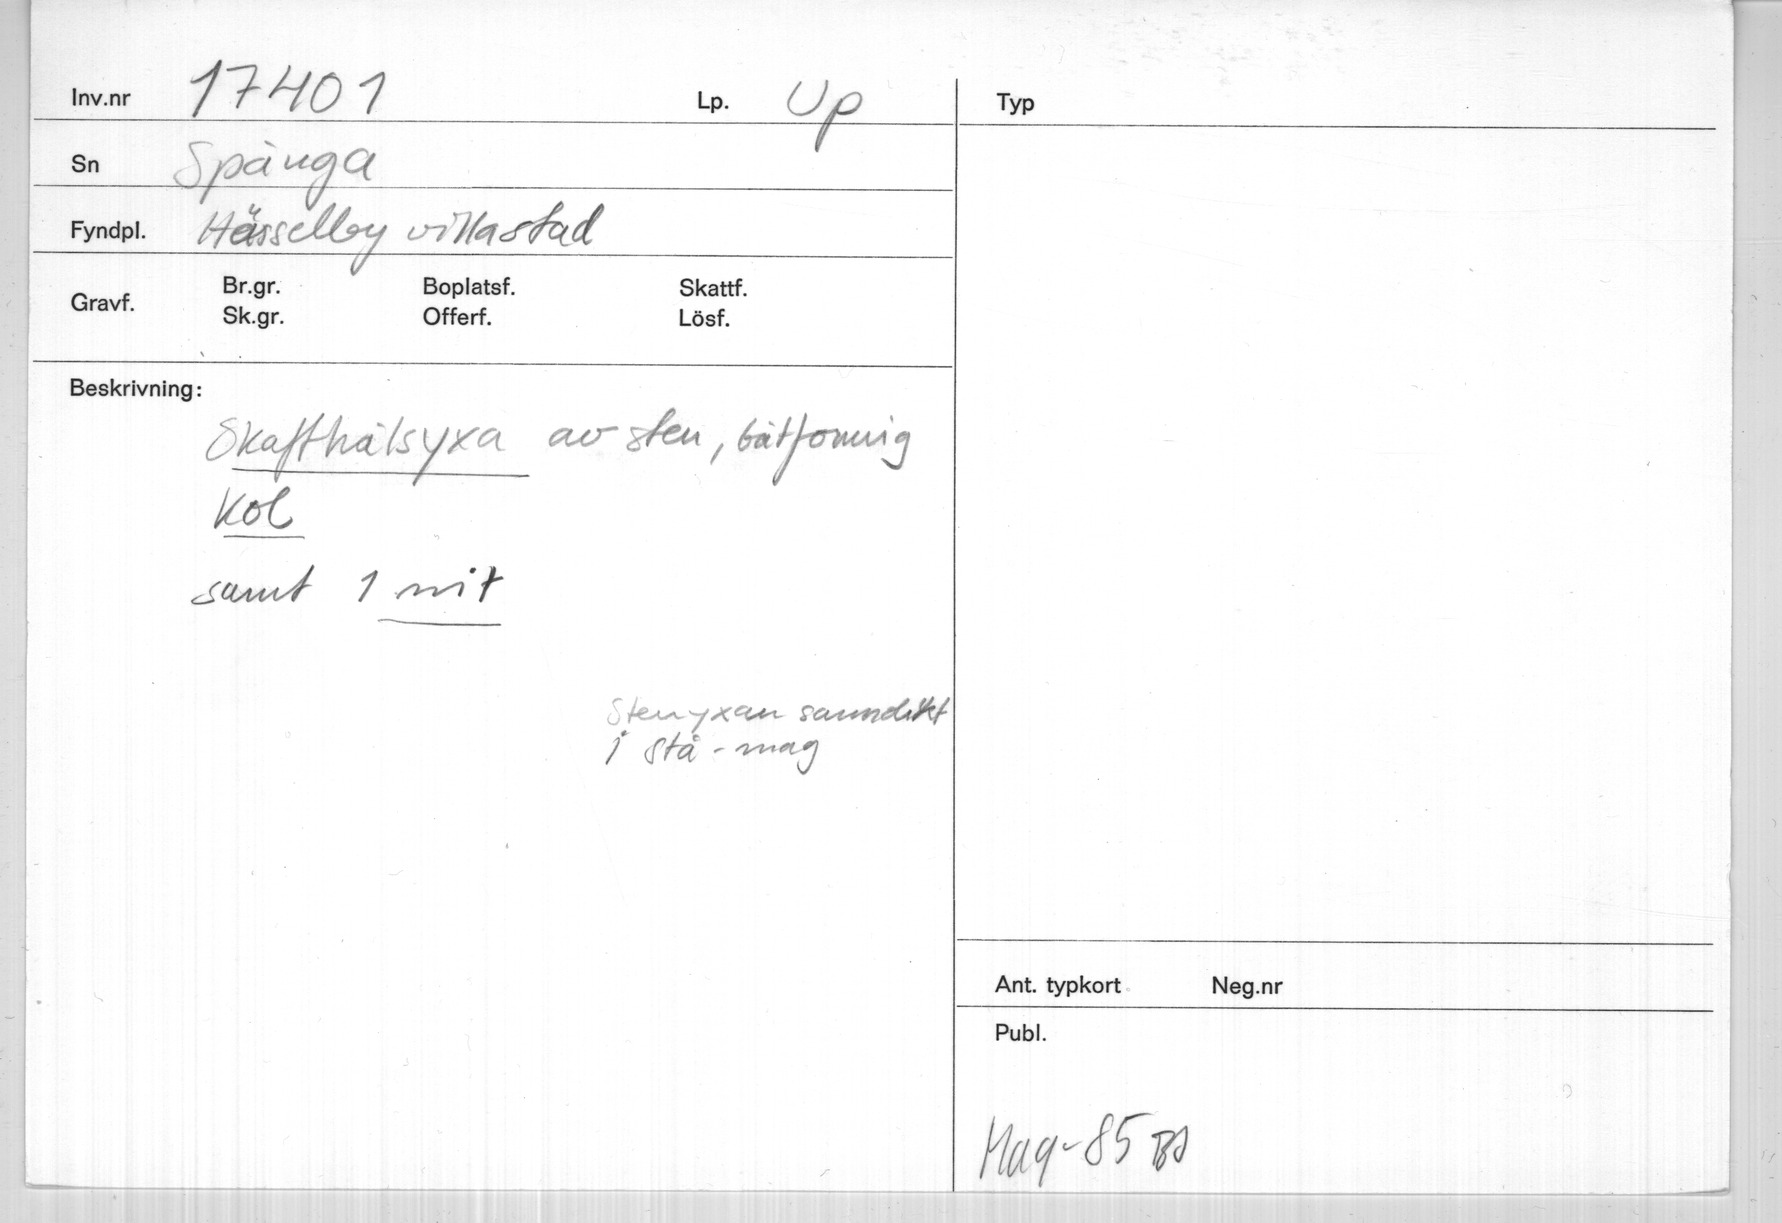 Inv.nr 17401 Lp. Up
Sn Spånga
Fyndpl. Hässelby villastad
Gravf. Br.gr. Boplatsf. Skattf.
Sk.gr. Offerf. Lösf.
Beskrivning:
Skafthålsyxa av sten, båtformig
Kol
samt 1 nit
Stenyxan
i stå-mag
Typ
Ant. typkort Neg.nr
Publ.
Mag-85